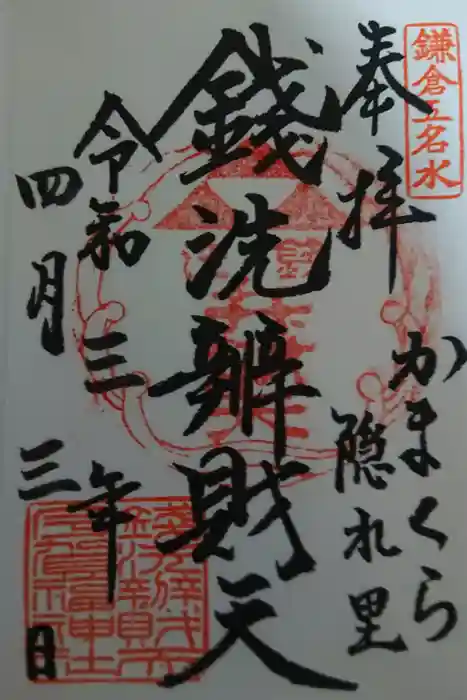 鎌倉五名水
奉拝
かまくら
隠れ里
銭洗辨財天
令和三年
四月三日